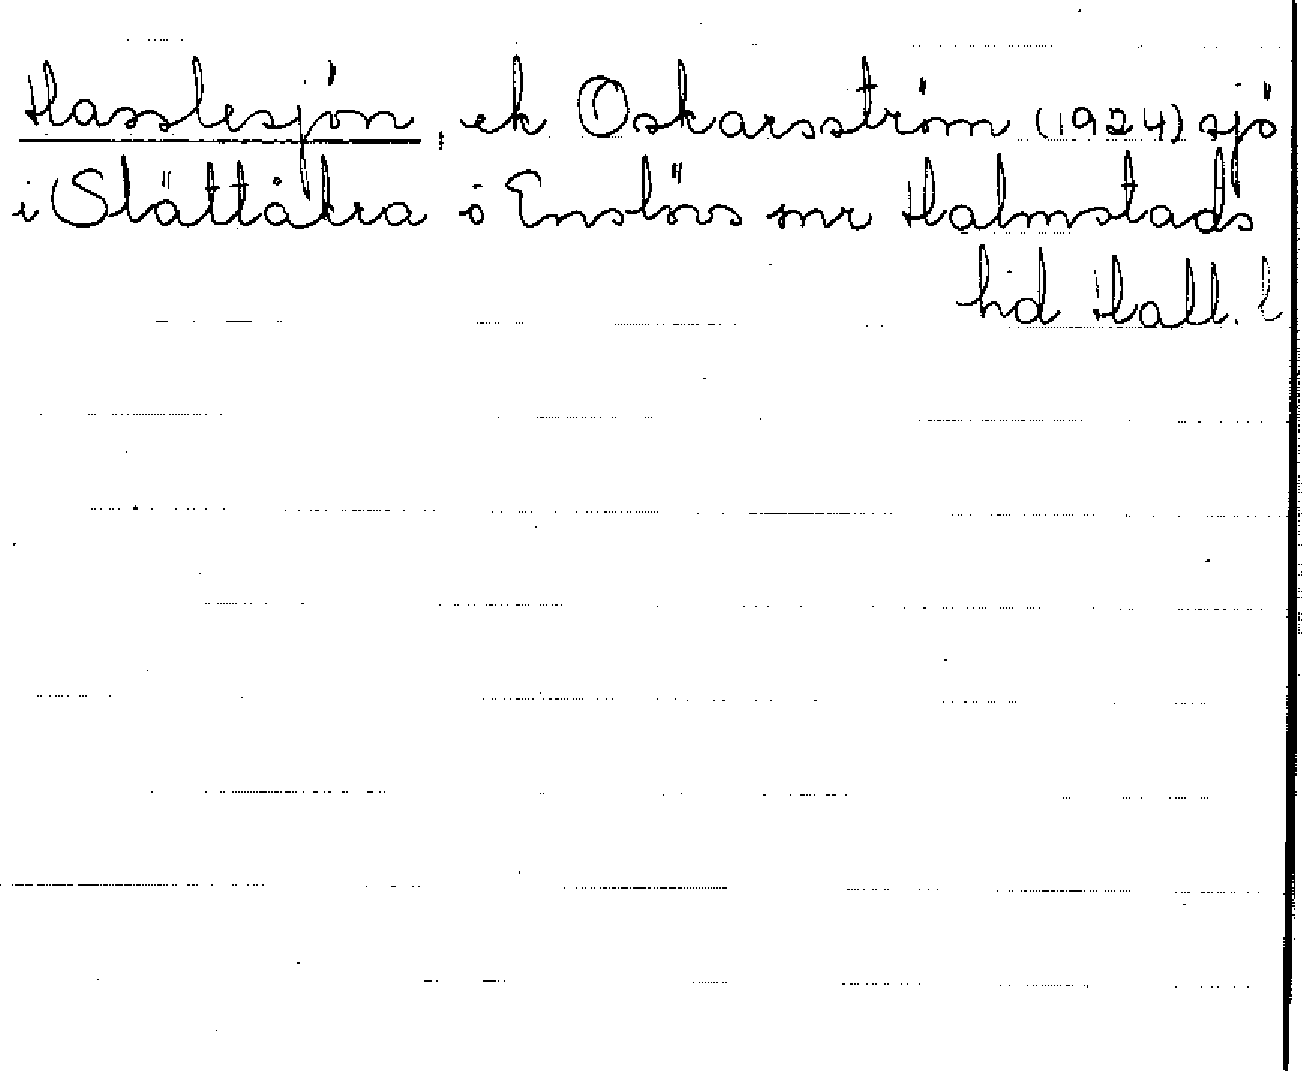 Hasslesjön, ek Oskarsström (1924) sjö
i Slättåkra o Enslövs snr Halmstads
hd Hall. l